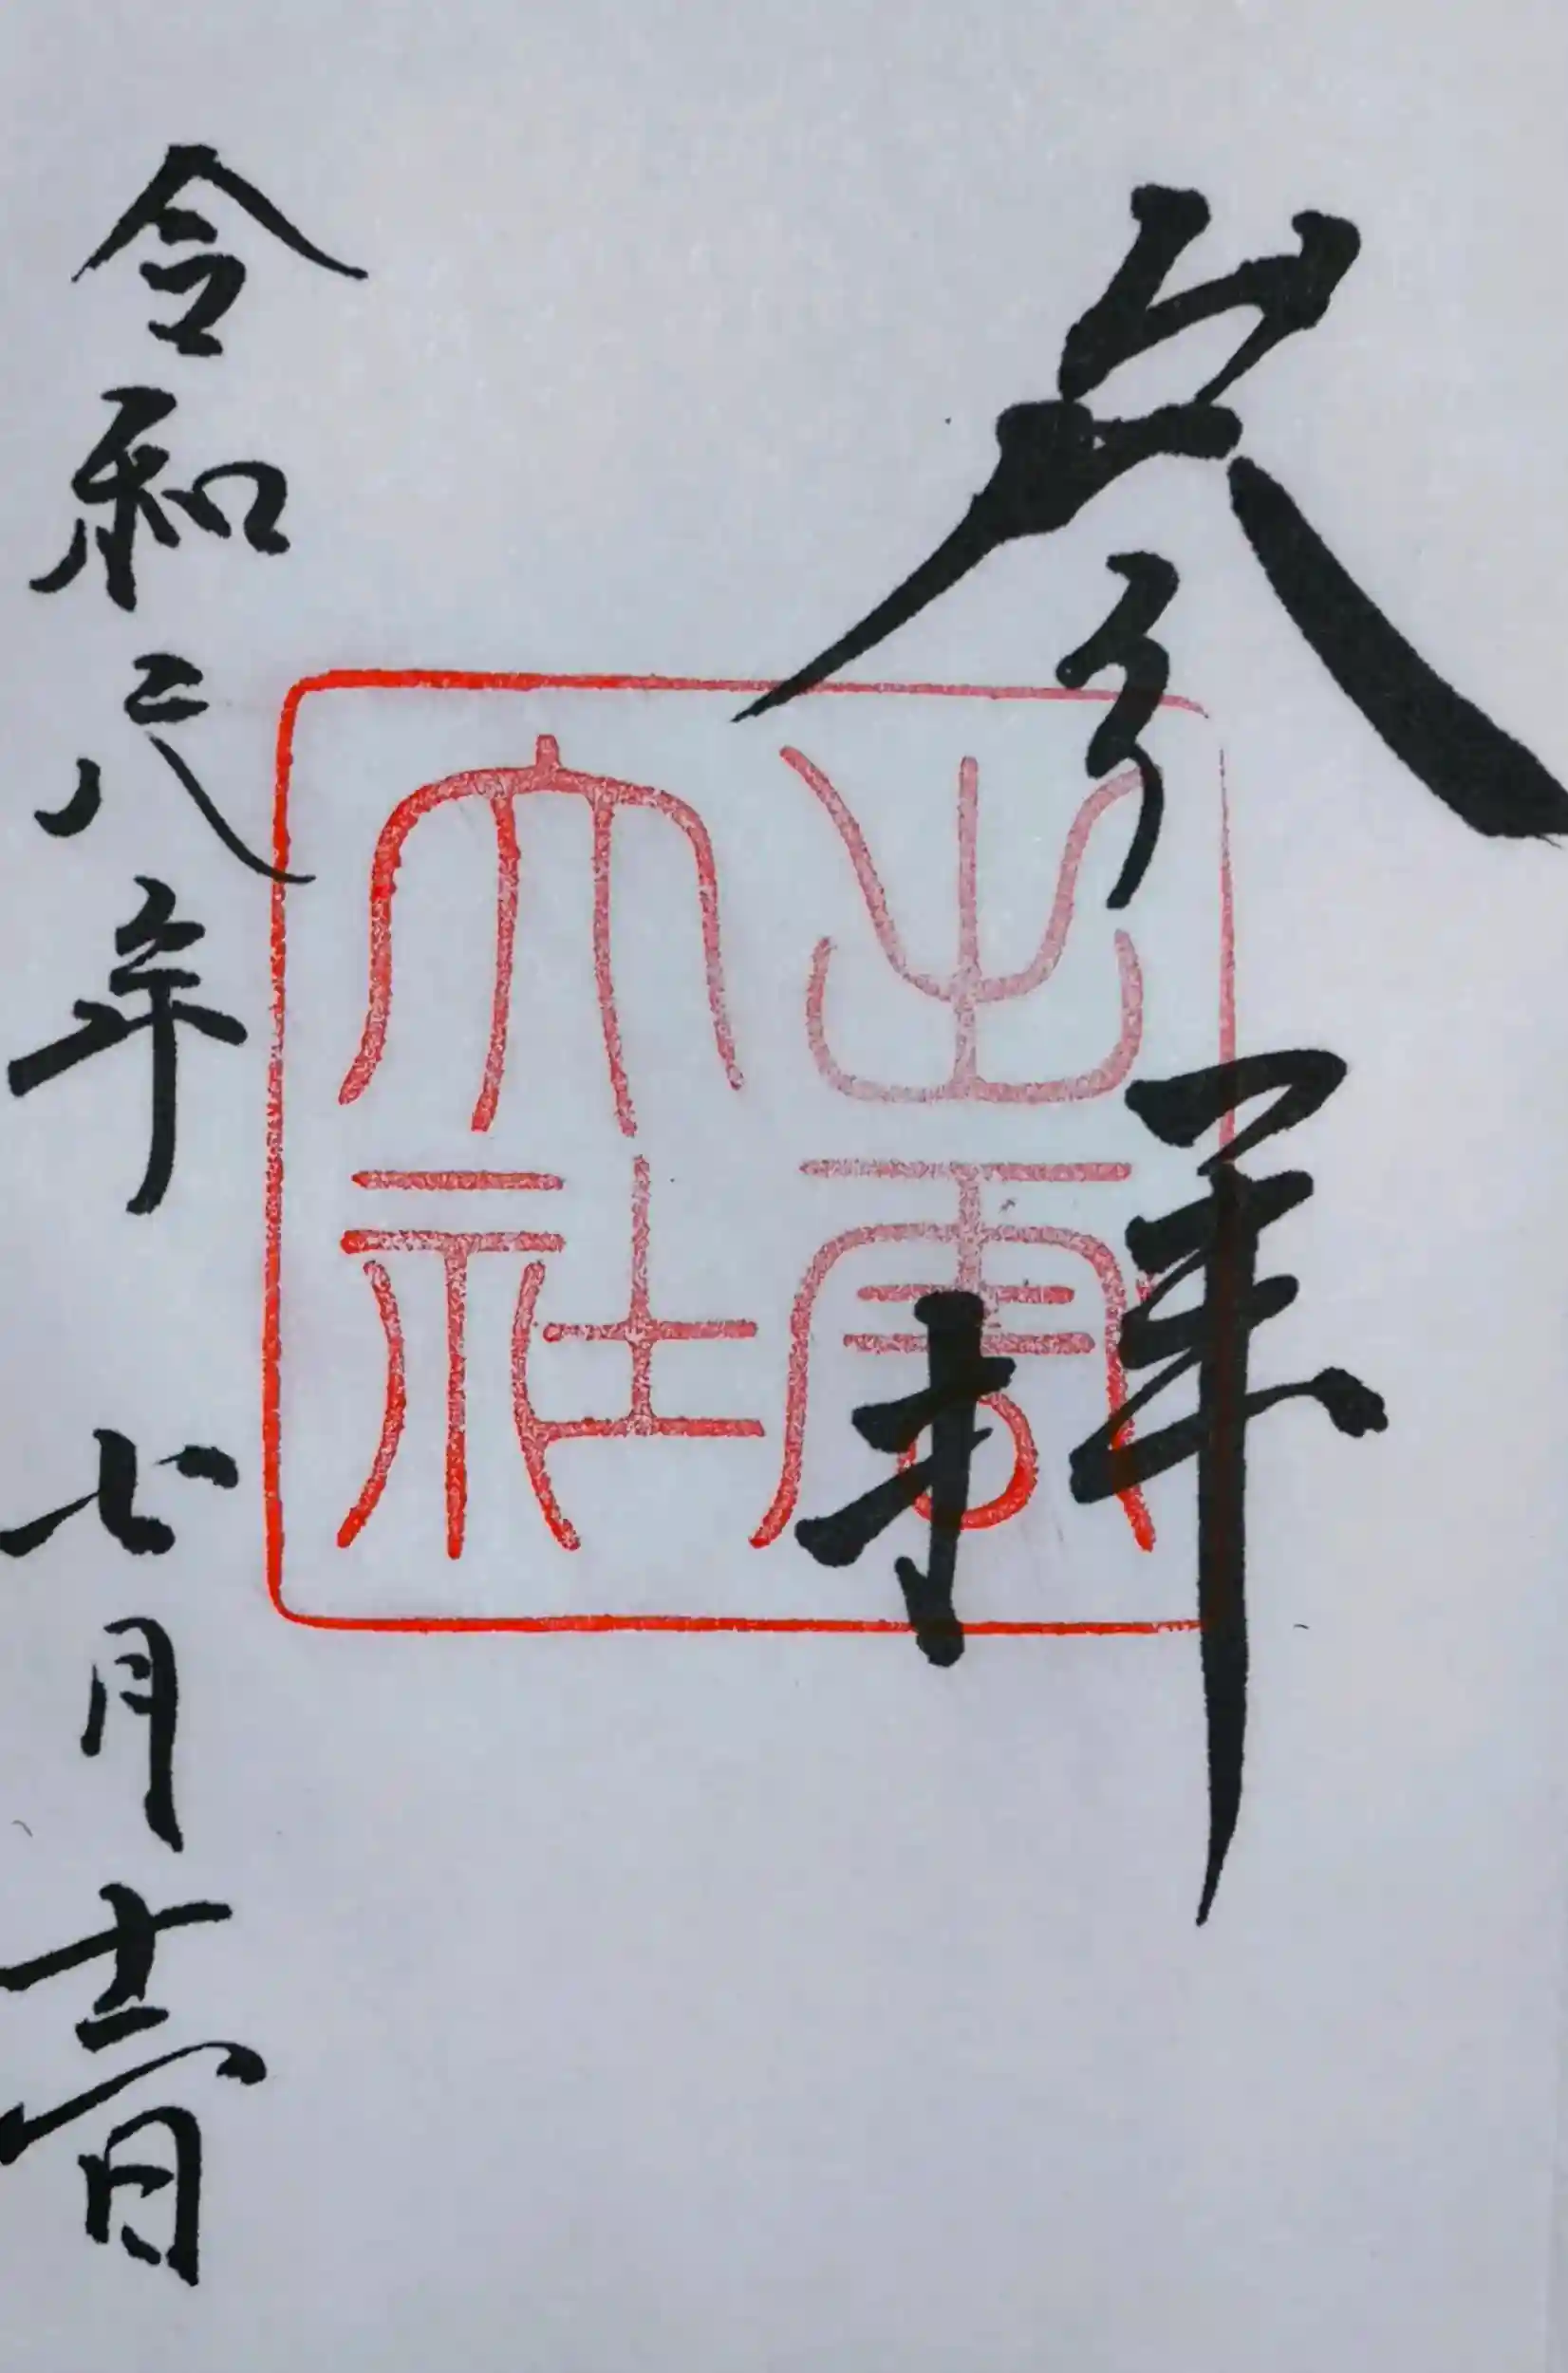 参拝
出雲大社
令和六年七月十二日